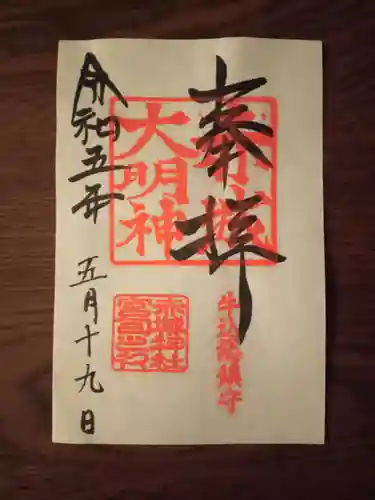 奉拝
赤城
大明神
牛込総鎮守
赤城神社
令和五年 五月十九日